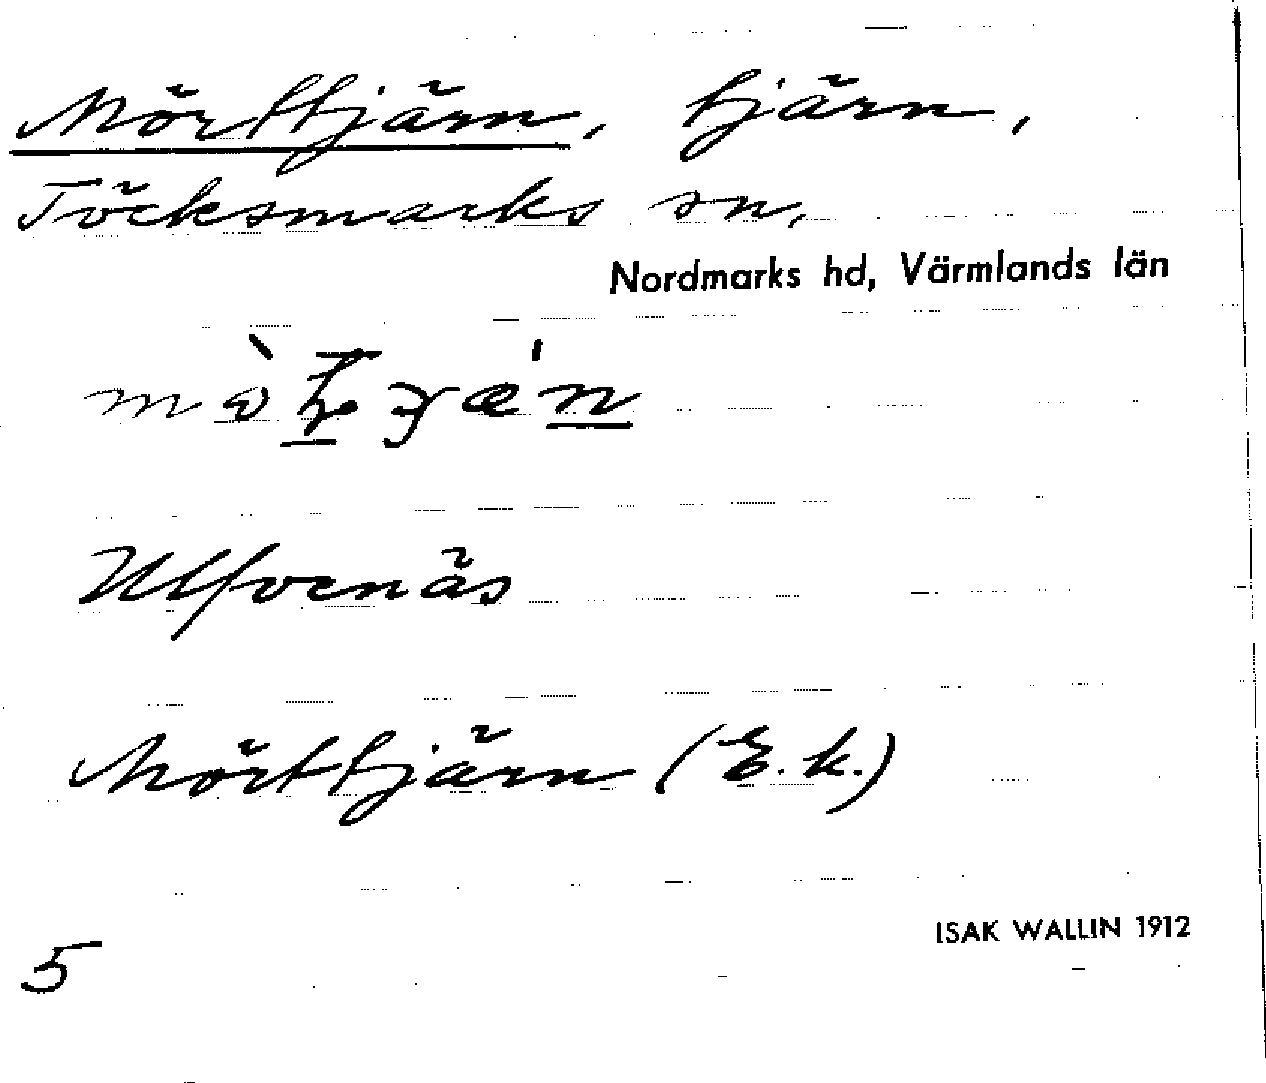 Mörttjärn, tjärn,
Töcksmarks sn,
Nordmarks hd, Värmlands län
Ulfvenäs
Mörttjärn (E.k.)
5
ISAK WALLIN 1912